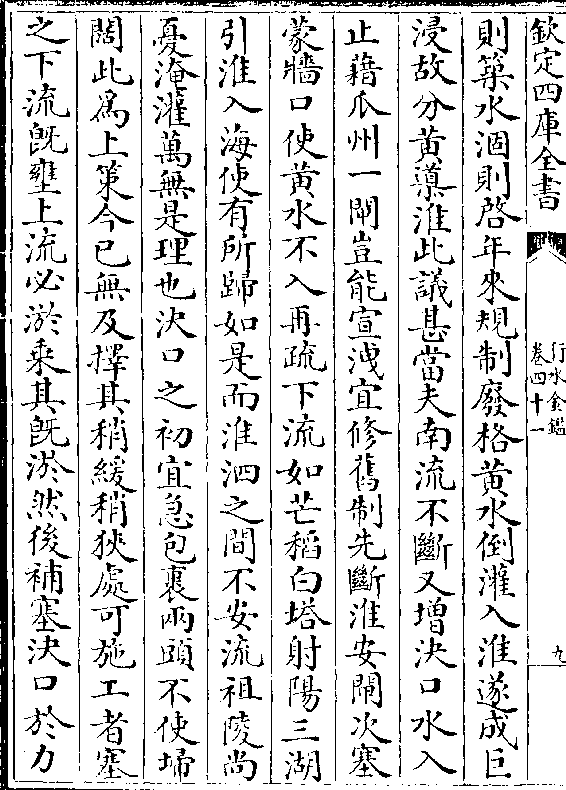 欽定四庫全書
行水金鑑
卷四十一
九
則築水涸則啓年來規制廢格黄水倒灌入淮遂成巨
浸故分黄導淮此議甚當夫南流不斷又增決口水入
止藉瓜州一閘豈能宣洩宜修舊制先斷淮安閘次塞
蒙牆口使黄水不入再疏下流如芒稻白塔射陽三湖
引淮入海使有所歸如是而淮泗之間不安流祖陵尚
憂淹灌萬無是理也決口之初宜急包裹兩頭不使埽
闊此為上策今已無及擇其稍緩稍狹處可施工者塞
之下流既壅上流必淤乘其既淤然後補塞決口於力